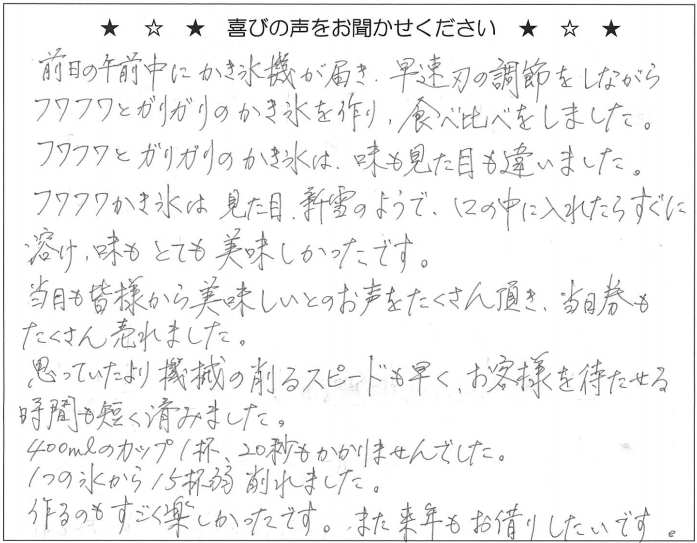 ★ ☆ ★ 喜びの声をお聞かせください ★ ☆ ★
前日の午前中にかき氷機が届き、早速刃の調節をしながら
フワフワとガリガリのかき氷を作り、食べ比べをしました。
フワフワとガリガリのかき氷は、味も見た目も違いました。
フワフワかき氷は見た目、新雪のようで、口の中に入れたらすぐに
溶け、味もとても美味しかったです。
当日も皆様から美味しいとのお声をたくさん頂き、当日券も
たくさん売れました。
思っていたより機械の削るスピードも早く、お客様を待たせる
時間も短く済みました。
400mlのカップ1杯、20秒もかかりませんでした。
1つの氷から15杯弱削れました。
作るのもすごく楽しかったです。また来年もお借りしたいです。
e